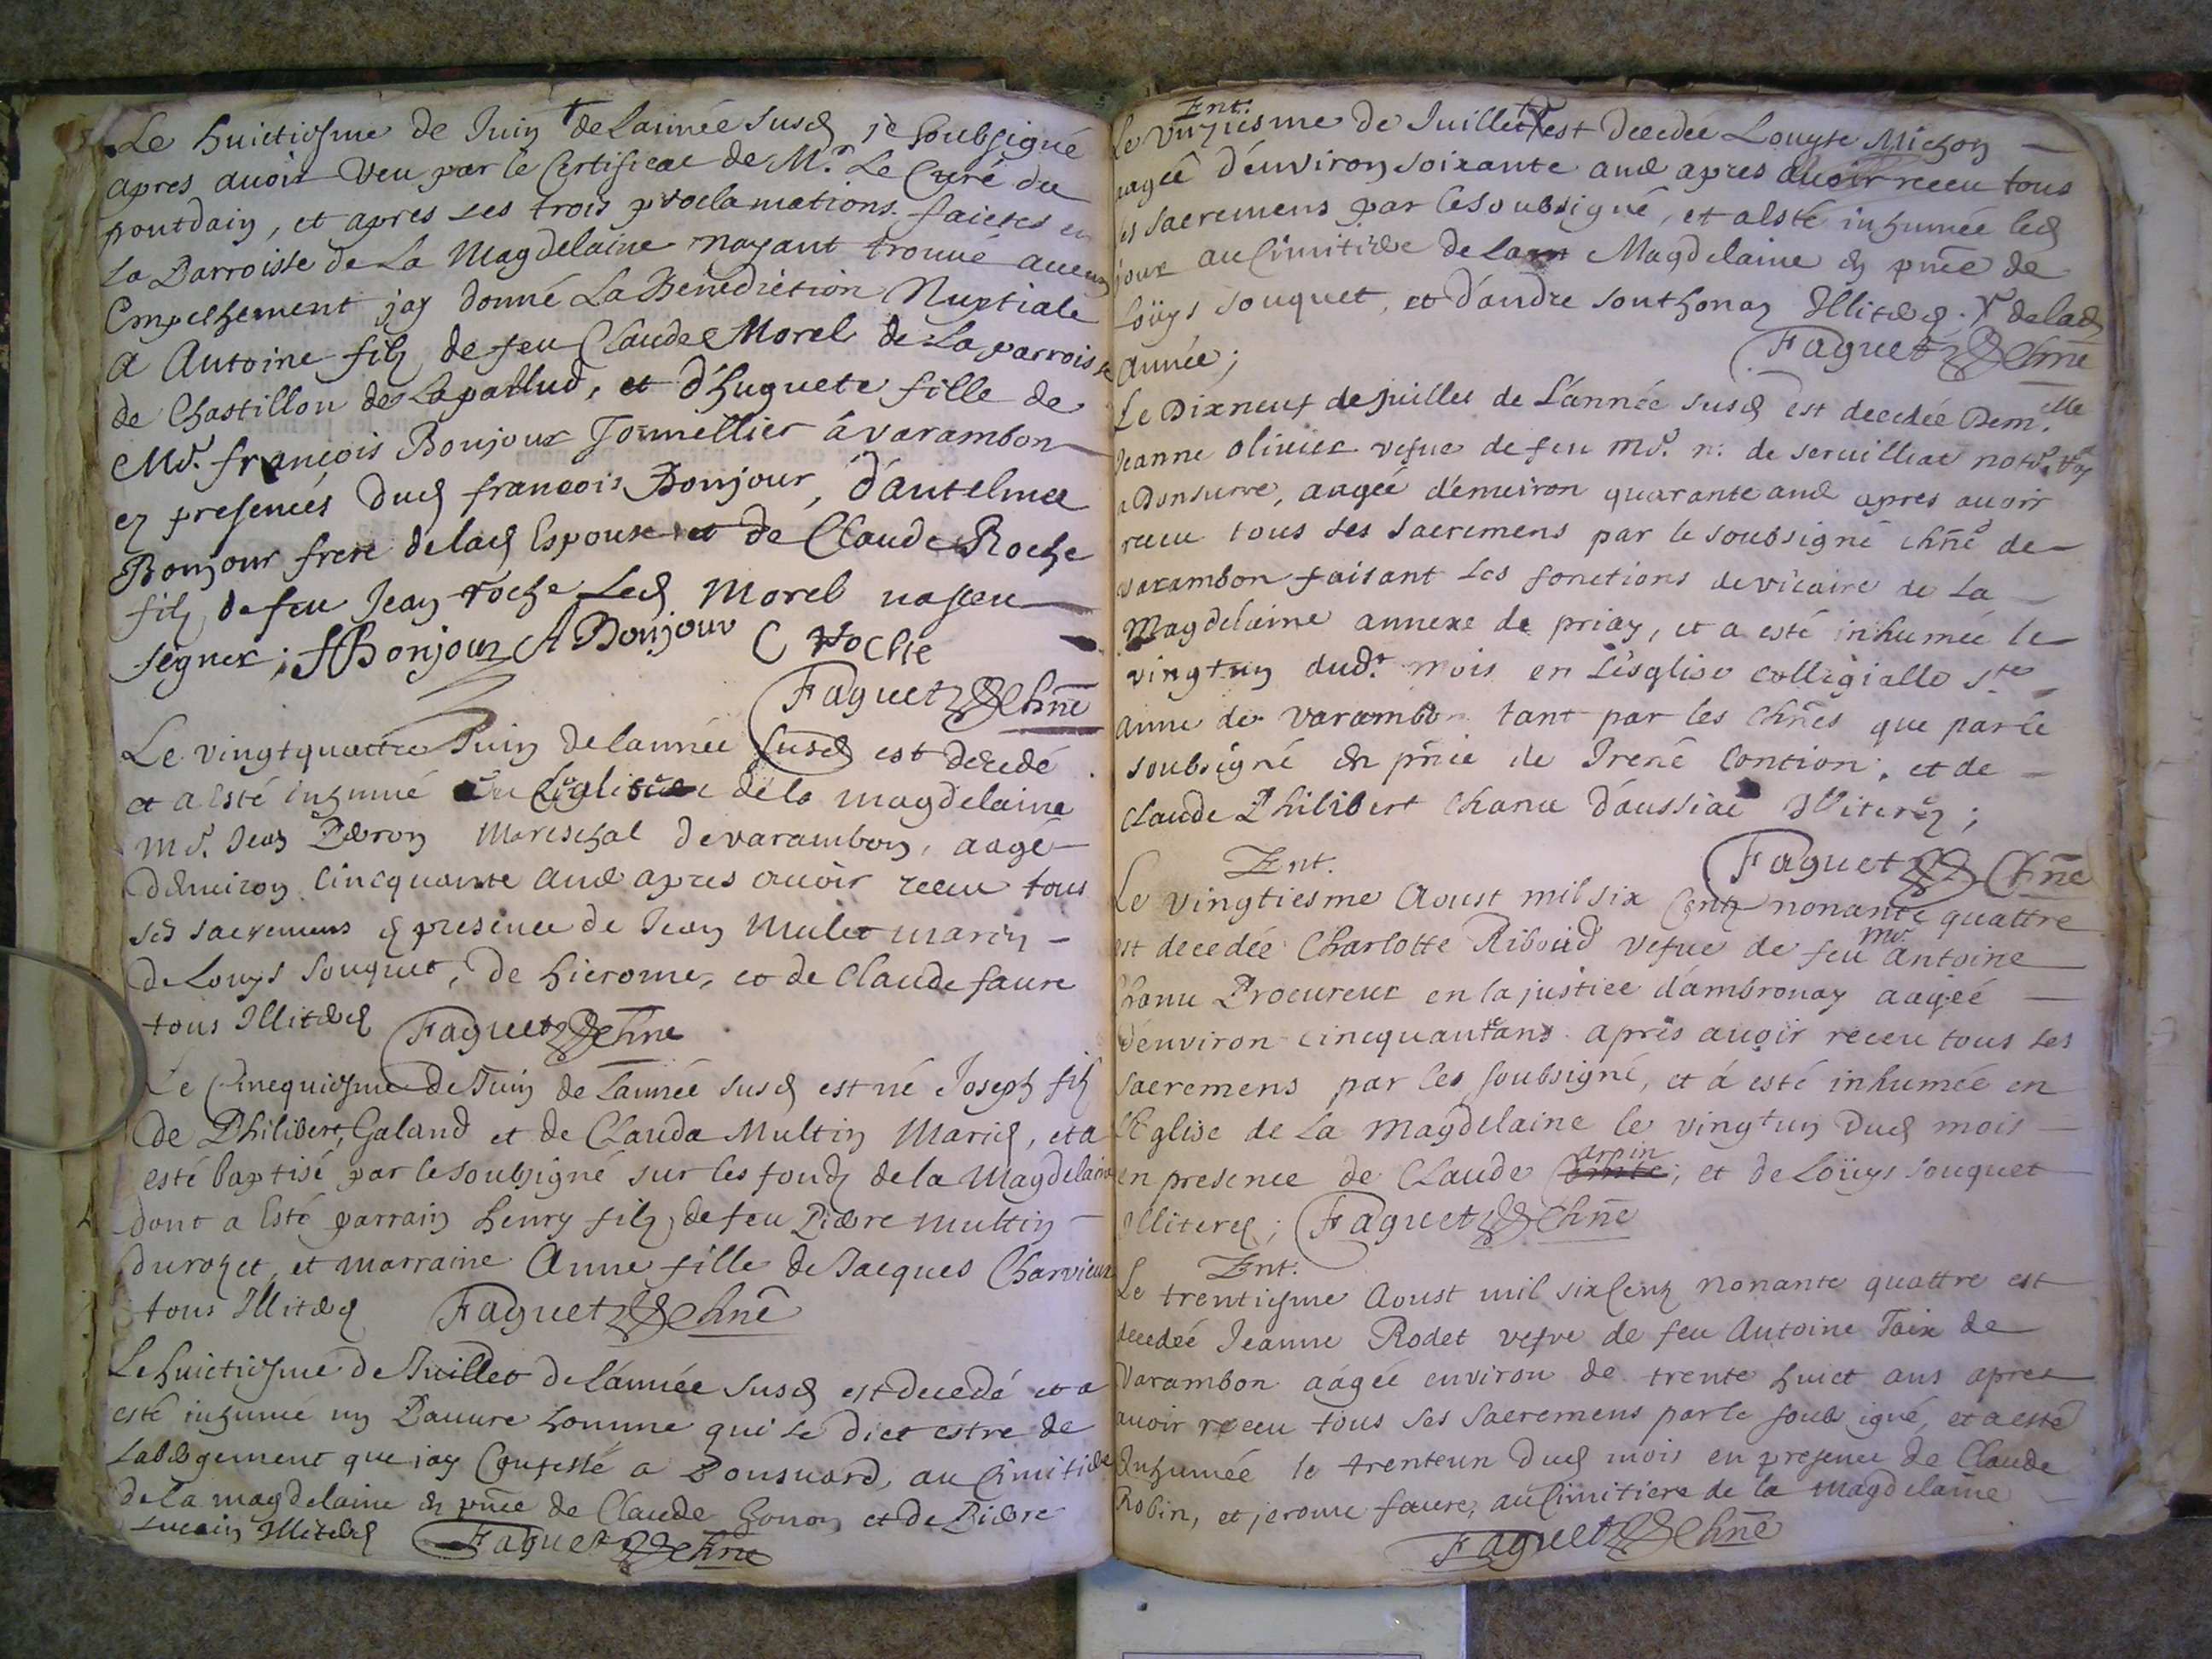 Le huictiesme de Juin de Lannée susd je soubsigné
apres auoir veu par le Certificat de Mr. Le Curé du
pontdain, et apres les trois proclamations faictes en
La Parroisse de La Magdelaine nayant trouué aucun
Empeschement jay donné La Benediction Nuptiale
A Antoine filz de feu Claude Morel de La parroisse
de Chastillon de Lapallud, et d'huguete fille de
Md. françois Bonjour Tonnellier á varambon
ez presences dud françois Bonjour, d'antelme
Bonjour frere de lad Espouse et de Claude Roche
filz de feu Jean roche Led Morel na sceu
signer; f Bonjour A Bonjour C Roche
Faguet Chne
Le vingtquattre Juin de lannée susd est decedé
et a Esté inhumé de la magdelaine
Md. Jean Mareschal de varambon, aagé
d'enuiron Cincquante ans apres auoir receu tous
ses sacremens presence de Jean Mulet
de Louys Souquet, de hierome, et de Claude faure
tous Illiterez Faguet Chne
Le Cinequiesme de Juin de Lannée susd est né Joseph filz
de Philibert Galand et de Clauda Multin Mariez, et a
esté baptisé par le soubsigné sur les fondz de la Magdelaine
dont a Esté parrain henry filz de feu Pierre multin
et marraine Anne fille de Jacques Charvieux
tous Illiterez Faguet Chne
Le huictiesme de Juillet de Lannée susd est decedé et a
esté inhumé un Pauure homme qui se dict estre de
que jay Confessé a Bonsuard, au Cimitiere
de La magdelaine en pnce de Claude et de Pierre
Illiterez Faguet Chne
Ent.
Le unziesme de Juillet est decedée Louyse Michon
aagée d'enuiron soixante ans apres auoir receu tous
les sacremens par le soubsigné, et a Esté inhumée led
jour au Cimitiere de La Magdelaine en pnce de
Loüys Souquet, et d'andre Southonax Illiterez. de lad
Année; Faguet Chne
Le Dixneuf de juillet de L'année susd est decedée Demelle
Jeanne Olivier vefue de feu Md. n: de seruillat
a Bonsurre, aagée d'enuiron quarante ans apres auoir
receu tous ses Sacremens par le soubsigné chne de
varambon faisant les fonctions de vicaire de La
Magdelaine annexe de priay, et a esté inhumée le
vingtun dudt mois en L'esglise collegialle Ste
Anne de varambon tant par les Chnes que par le
soubsigné en pnce de Irené Contion, et de
Claude Philibert Chanu d'aussiac Illiterez;
Faguet Chne
Ent.
Le vingtiesme Aoust mil six Centz nonante quattre
est decedée Charlotte Riboud vefue de feu Md. Antoine
Chanu Procureur en la justice d'ambronay aagée
d'enuiron cincquante ans apres auoir receu tous ses
Sacremens par les soubsigné, et á esté inhumée en
L'Eglise de La Magdelaine le vingtun Dud mois
en presence de Claude arpin, et de Loüys Souquet
Illiterez; Faguet Chne
Ent.
Le trentiesme Aoust mil six Centz nonante quattre est
decedée Jeanne Rodet vefve de feu Antoine Taix de
Varambon aágée environ de trente huict ans apres
auoir receu tous ses Sacremens par le soubsigné, et a esté
Inhumée le trenteun dud mois en presence de Claude
Robin, et jerome faure, au Cimitiere de la Magdelaine
Faguet Chne